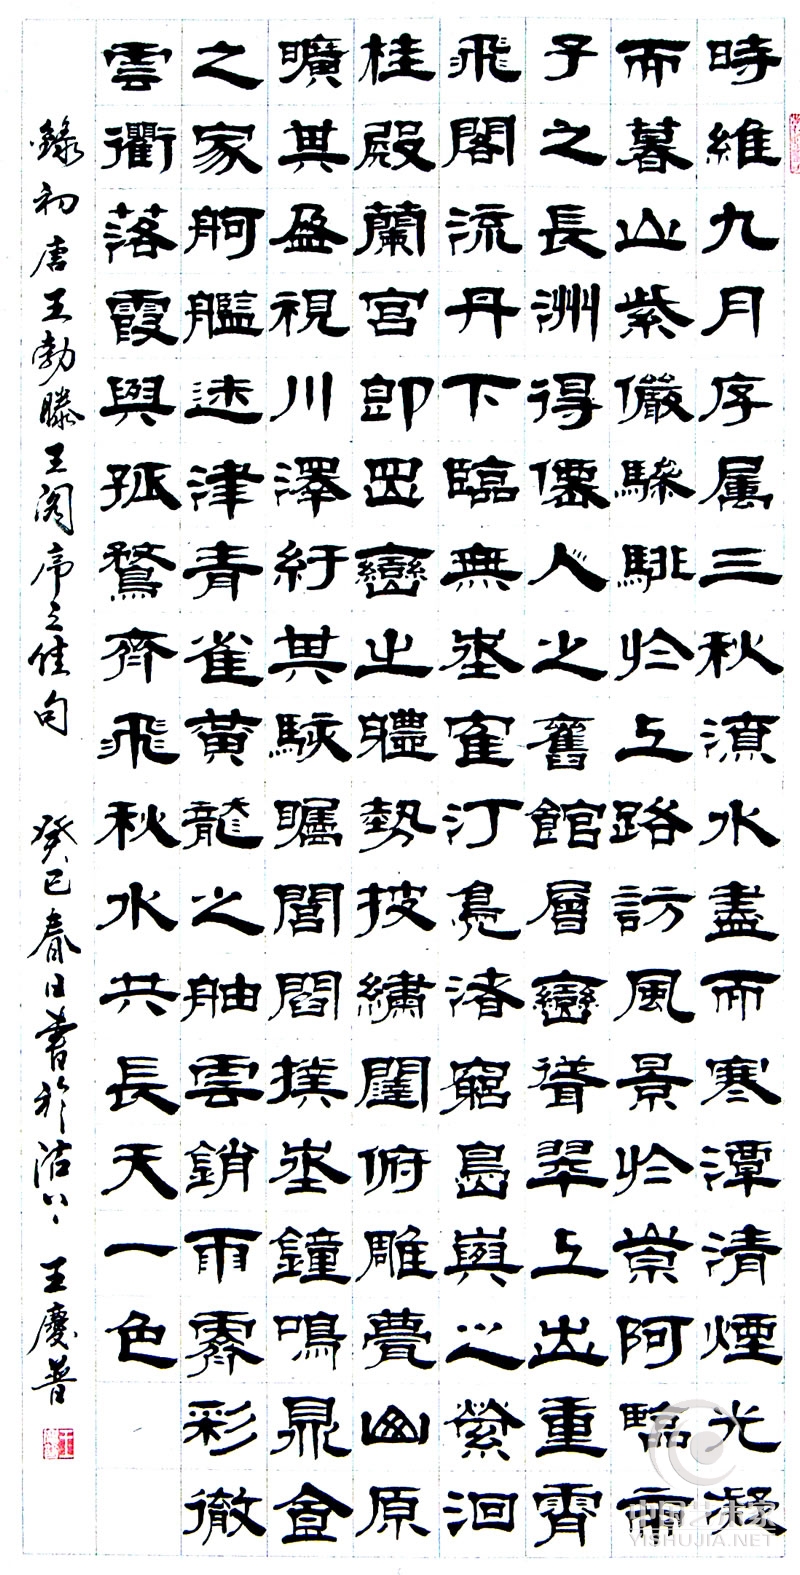 時維九月序属三秋潦水盡而寒潭清煙光凝
而暮山紫儼驂騑於上路訪風景於崇阿臨帝
子之長洲得僊人之舊館層巒聳翠上出重霄
飛閣流丹下臨無埊寉汀鳧渚窮島嶼之縈洄
桂殿蘭宫即岡巒之軆勢披繡闥俯雕甍山原
曠其盈視川澤紆其駭矚閭閻撲埊鐘鳴鼎食
之家舸艦迷津青雀黄龍之舳雲銷雨霽彩徹
雲衢落霞與孤鶩齊飛秋水共長天一色
錄初唐王勃滕王阁序之佳句 癸巳春日書於沽上 王慶普
中国艺术家
YISHUJIA.NET